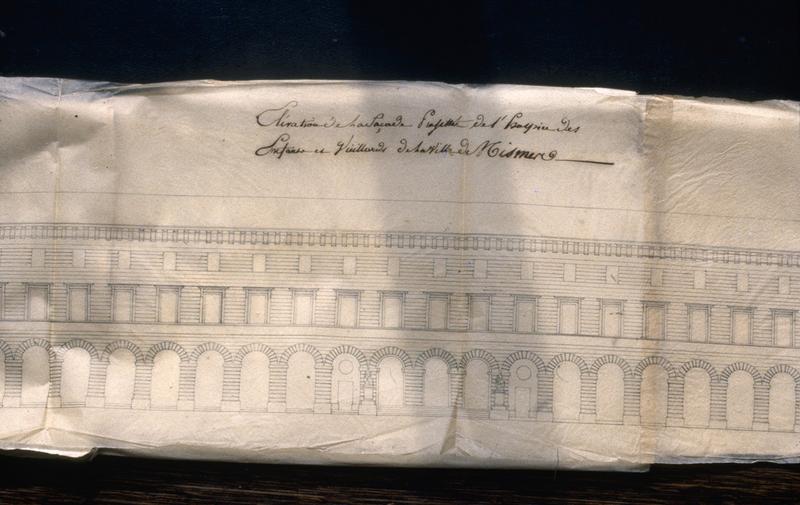 Elévation de La façade Projettée de l'hospice des
Enfants et Vieillards de la Ville de Nismes